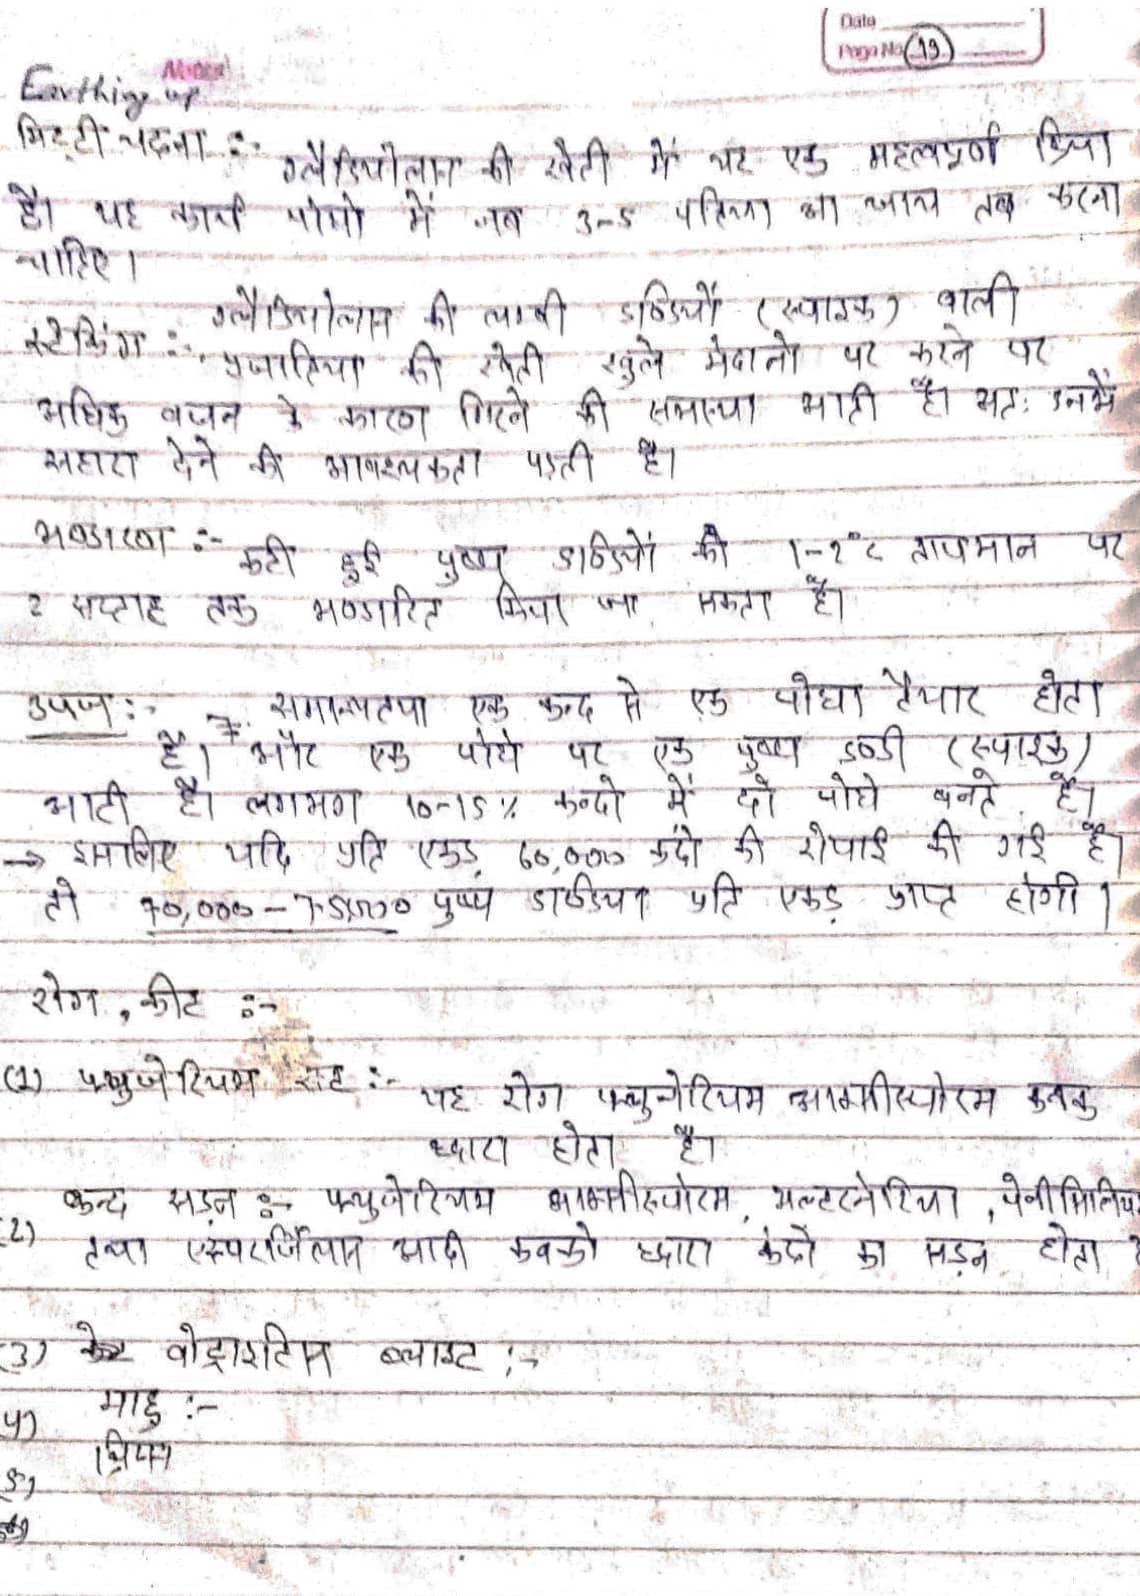 Date
Page No. 19
Earthing up
मिट्टी चढ़ना :-
ग्लैडियोलास की खेती में यह एक महत्वपूर्ण क्रिया
है। यह कार्य पौधो में जब 3-5 पत्तिया आ जाय तब करना
चाहिए।
ग्लैडियोलास की लम्बी डण्डियों (स्पाइक) वाली
स्टेकिंग :- प्रजातिया की खेती खुले मैदानो पर करने पर
अधिक वजन के कारण गिरने की समस्या आती है। अतः उनमें
सहारा देने की आवश्यकता पड़ती है।
भण्डारण :- कटी हुई पुष्प डण्डियों को 1-2°c तापमान पर
2 सप्ताह तक भण्डारित किया जा सकता है।
उपज :- समान्यतया एक कन्द से एक पौधा तैयार होता
है। और एक पौधे पर एक पुष्प डण्डी (स्पाइक)
आती है। लगभग 10-15% कन्दो में दो पौधे बनते है।
→ इसलिए यदि प्रति एकड़ 60,000 कंदो की रोपाई की गई है।
तो 70,000 - 75,000 पुष्प डण्डिया प्रति एकड़ प्राप्त होगी।
रोग, कीट :-
(1) फ्युजेरियम राट :- यह रोग फ्युजेरियम आक्सीस्पोरम कवक
ध्दारा होता है।
(2) कन्द सड़न :- फ्युजेरियम आक्सीस्पोरम, अल्टरनेरिया, पेनीसिलिय
तथा एस्परजिलास आदी कवको ध्दारा कंदो का सड़न होता है
(3) वोट्राइटिस ब्लाइट :-
4) माहु :-
5) थ्रिप्स